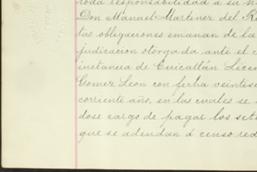 toda responsabilidad a su
Don Manuel Martinez del
las obligaciones emanan de la
judicacion otorgada ante el
instancia de Cuicatlán Licen
Gomez Leon con fecha veintise
corriente año, en las cuales se
dose cargo de pagar los sete
que se adeudan á censo red